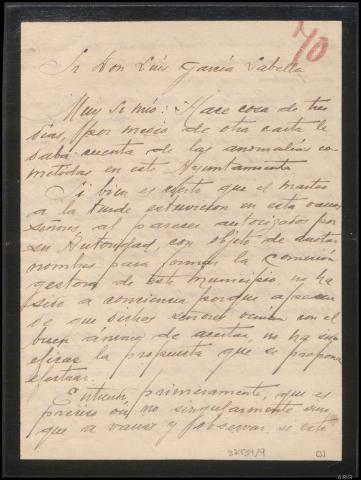 70
Sr Don Luis García Labella
Muy Sr mio: Hace cosa de tres
dias, por medio de otra carta le
daba cuenta de las anomalias co-
metidas en este Ayuntamiento
Si bien es cierto que el martes
a la tarde estuvieron en esta
señores al parecer autorizados por
su Autoridad, con objeto de
nombres para formar la Comisión
gestora de este municipio, no ha
sido a conciencia porque apesar
de que dichos señores venian con el
buen ánimo de acertar, no ha sido
eficaz la propuesta que se propona
efectuar.
Entiendo primeramente, que es
preciso oir no singularmente sino
que a varios y observar si este
32434/9
01
ARG